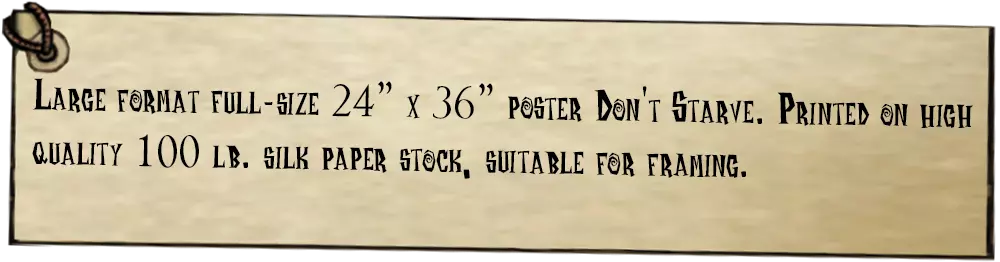 Large format full-size 24” x 36” poster Don't Starve. Printed on high
quality 100 lb. silk paper stock, suitable for framing.